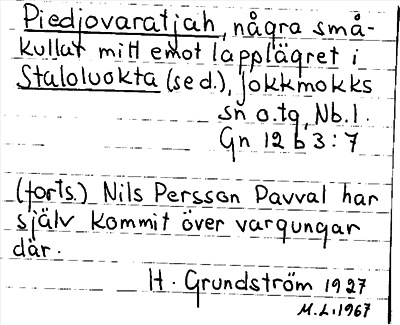 Piedjovaratjah, några små-
kullar mitt emot lapplägret i
Staloluokta (se d.), Jokkmokks
sn o. tg, Nb.l.
Gn 12 b 3:7
(forts.) Nils Persson Pavval har
själv kommit över vargungar
där.
H. Grundström 1927
M.L. 1967